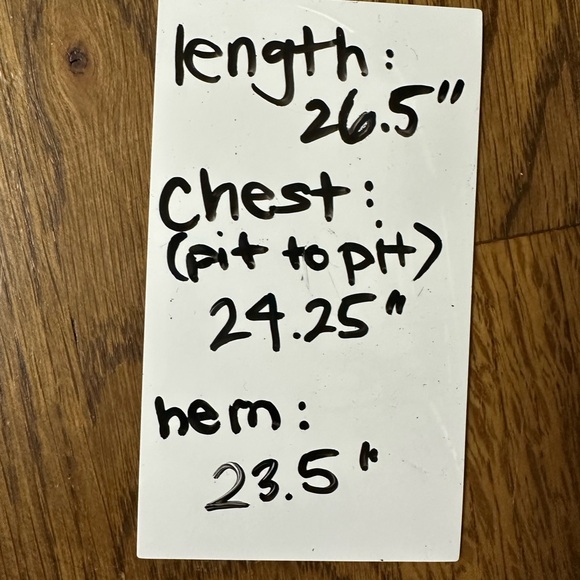 length:
26.5"
Chest:
(pit to pit)
24.25"
hem:
23.5"